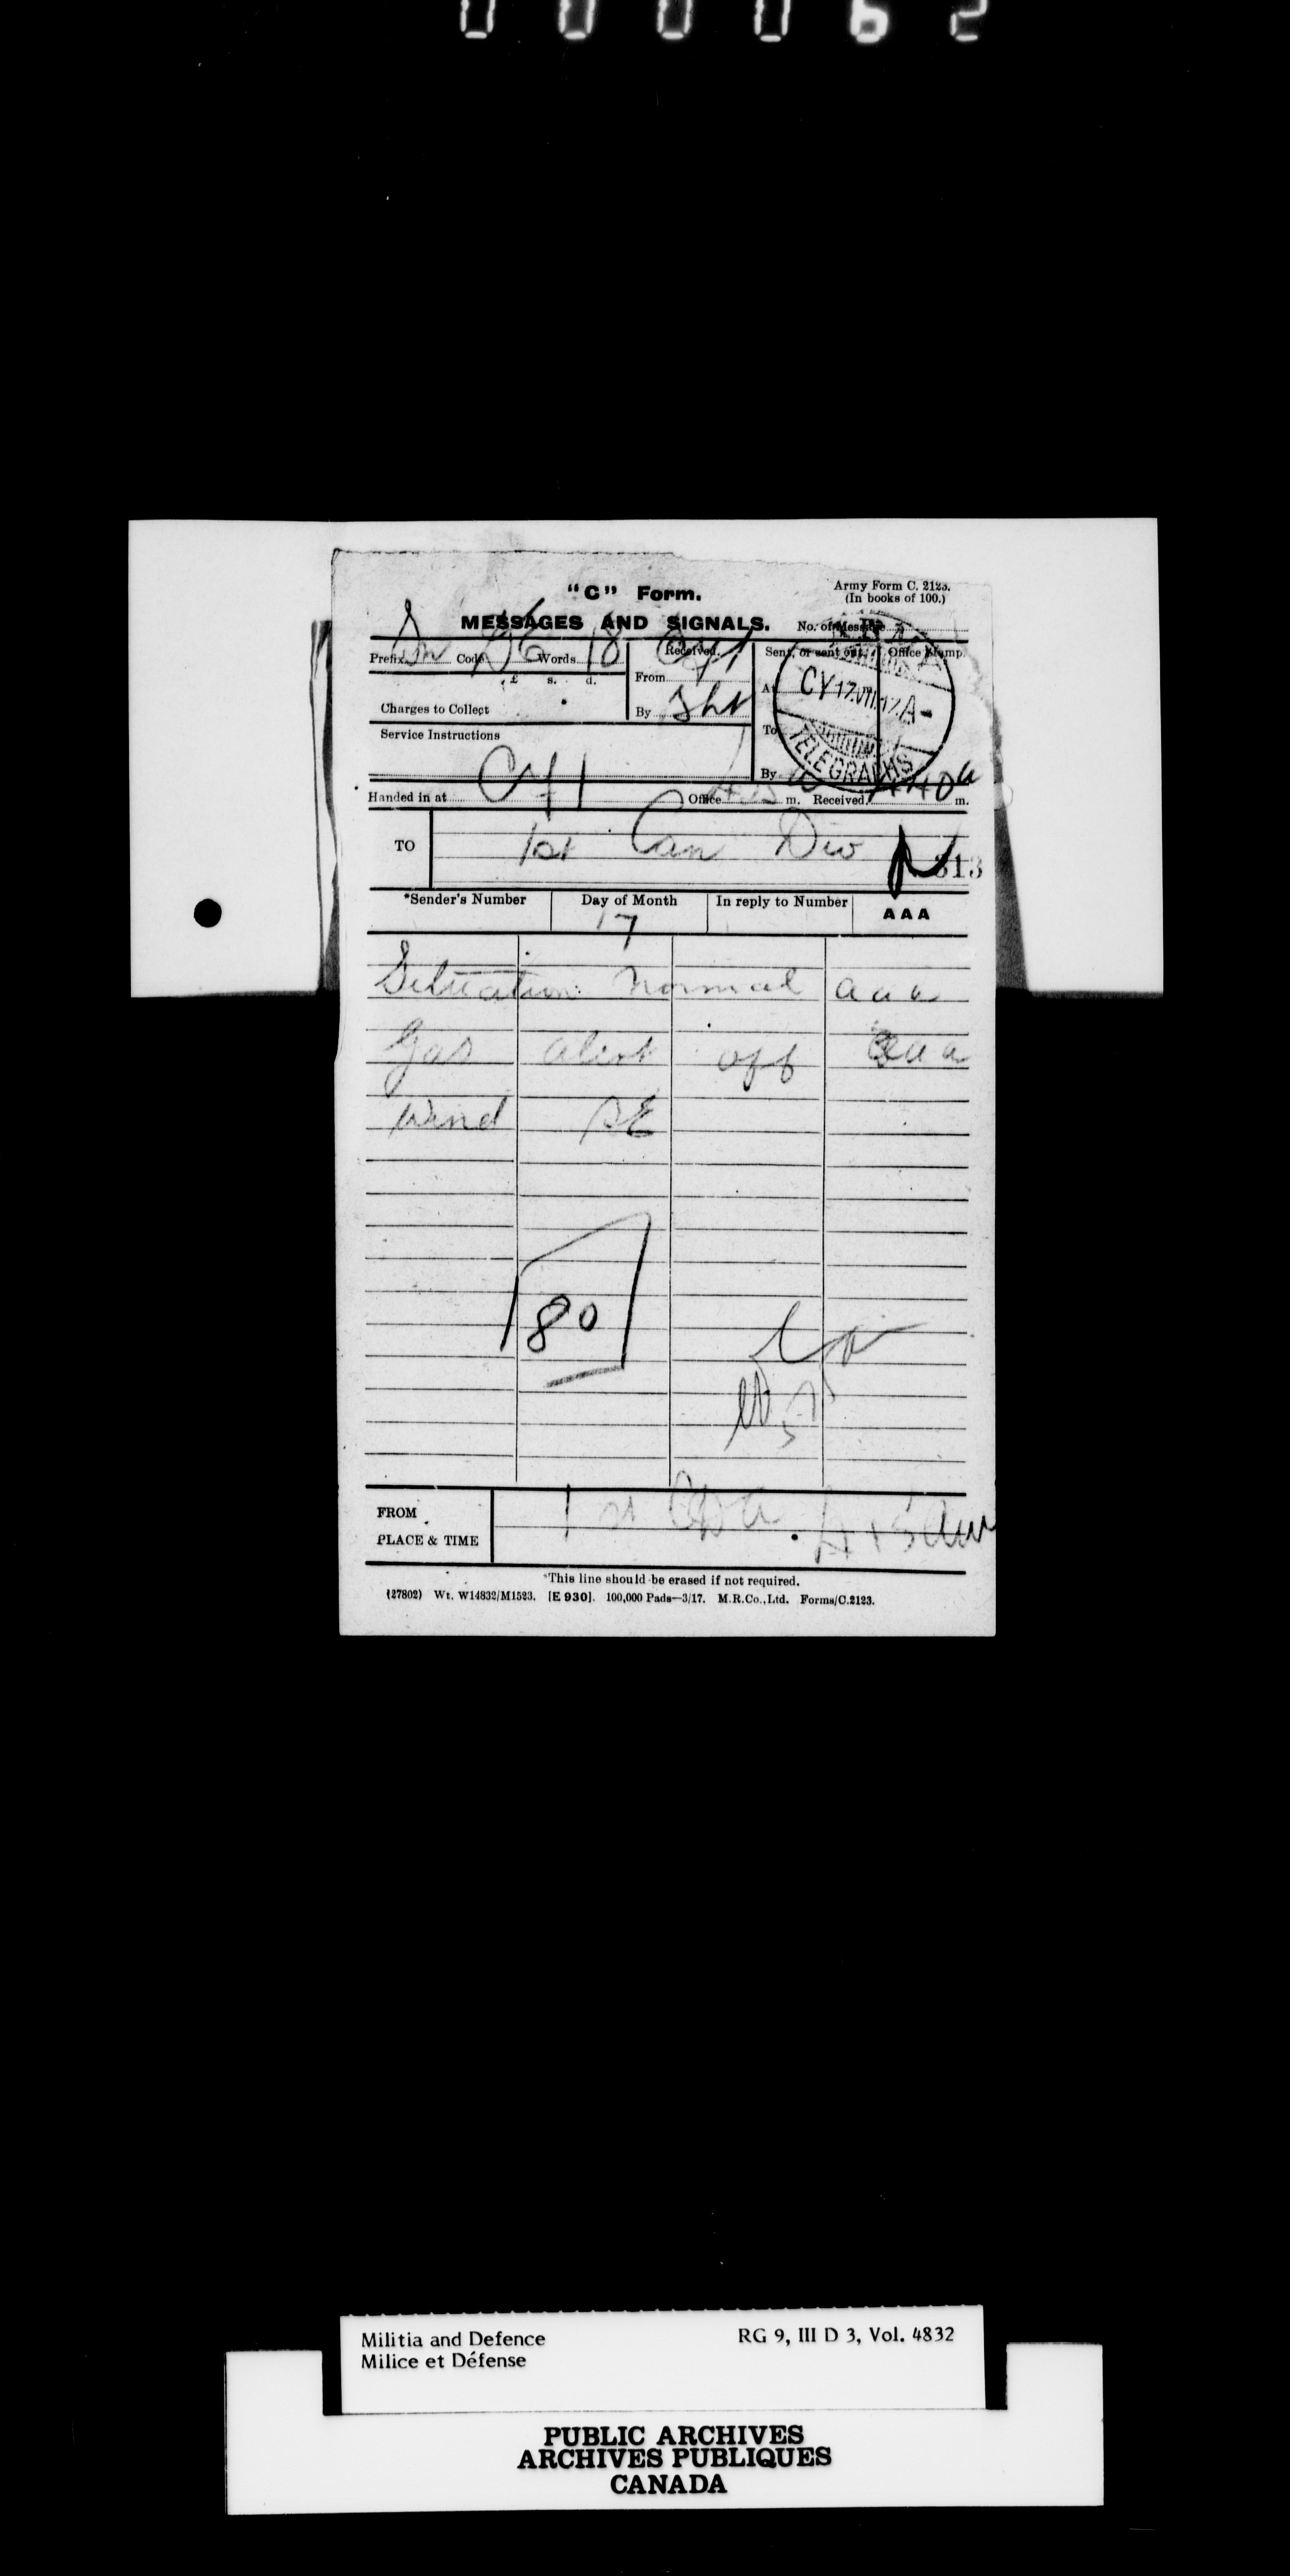 000062
"C" Form.
Army Form C. 2123.
(In books of 100.)
MESSAGES AND SIGNALS.
No. of Message
Prefix Sm Code Words 18
Received.
Sent, or sent out.
Office Stamp.
£ s. d.
From Cy1
At
CY 17.VII.17 A-
TELEGRAPHS
Charges to Collect
By
To
Service Instructions
By
Handed in at Cy1 Office m. Received m.
TO 1st Can Div
313
*Sender's Number
Day of Month
In reply to Number
AAA
17
Situation normal aaa
Gas alert off aaa
Wind SE
80
FROM 1st CDA 4.15 am
PLACE & TIME
*This line should be erased if not required.
(27802) Wt. W14832/M1523. [E 930]. 100,000 Pads—3/17. M.R.Co.,Ltd. Forms/C.2123.
Militia and Defence
RG 9, III D 3, Vol. 4832
Milice et Défense
PUBLIC ARCHIVES
ARCHIVES PUBLIQUES
CANADA